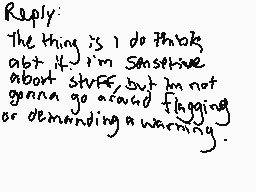 Reply:
The thing is I do think
abt it. i'm sensetive
abort stuff, but Im not
gonna go around flagging
or demanding a warning.